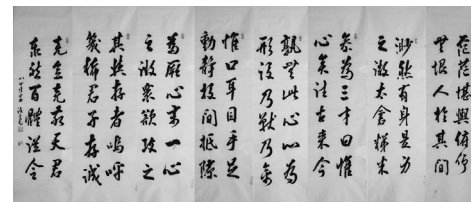 茫茫堪輿俯仰
無垠人於其間
渺然有身是身
之微太倉稊米
參為三才曰惟
心爾往古來今
孰無此心心為
形役乃獸乃禽
惟口耳目手足
動靜投間抵隙
為厥心病一心
之微衆欲攻之
其與存者嗚呼
幾稀君子存誠
克念克敬天君
泰然百體從令